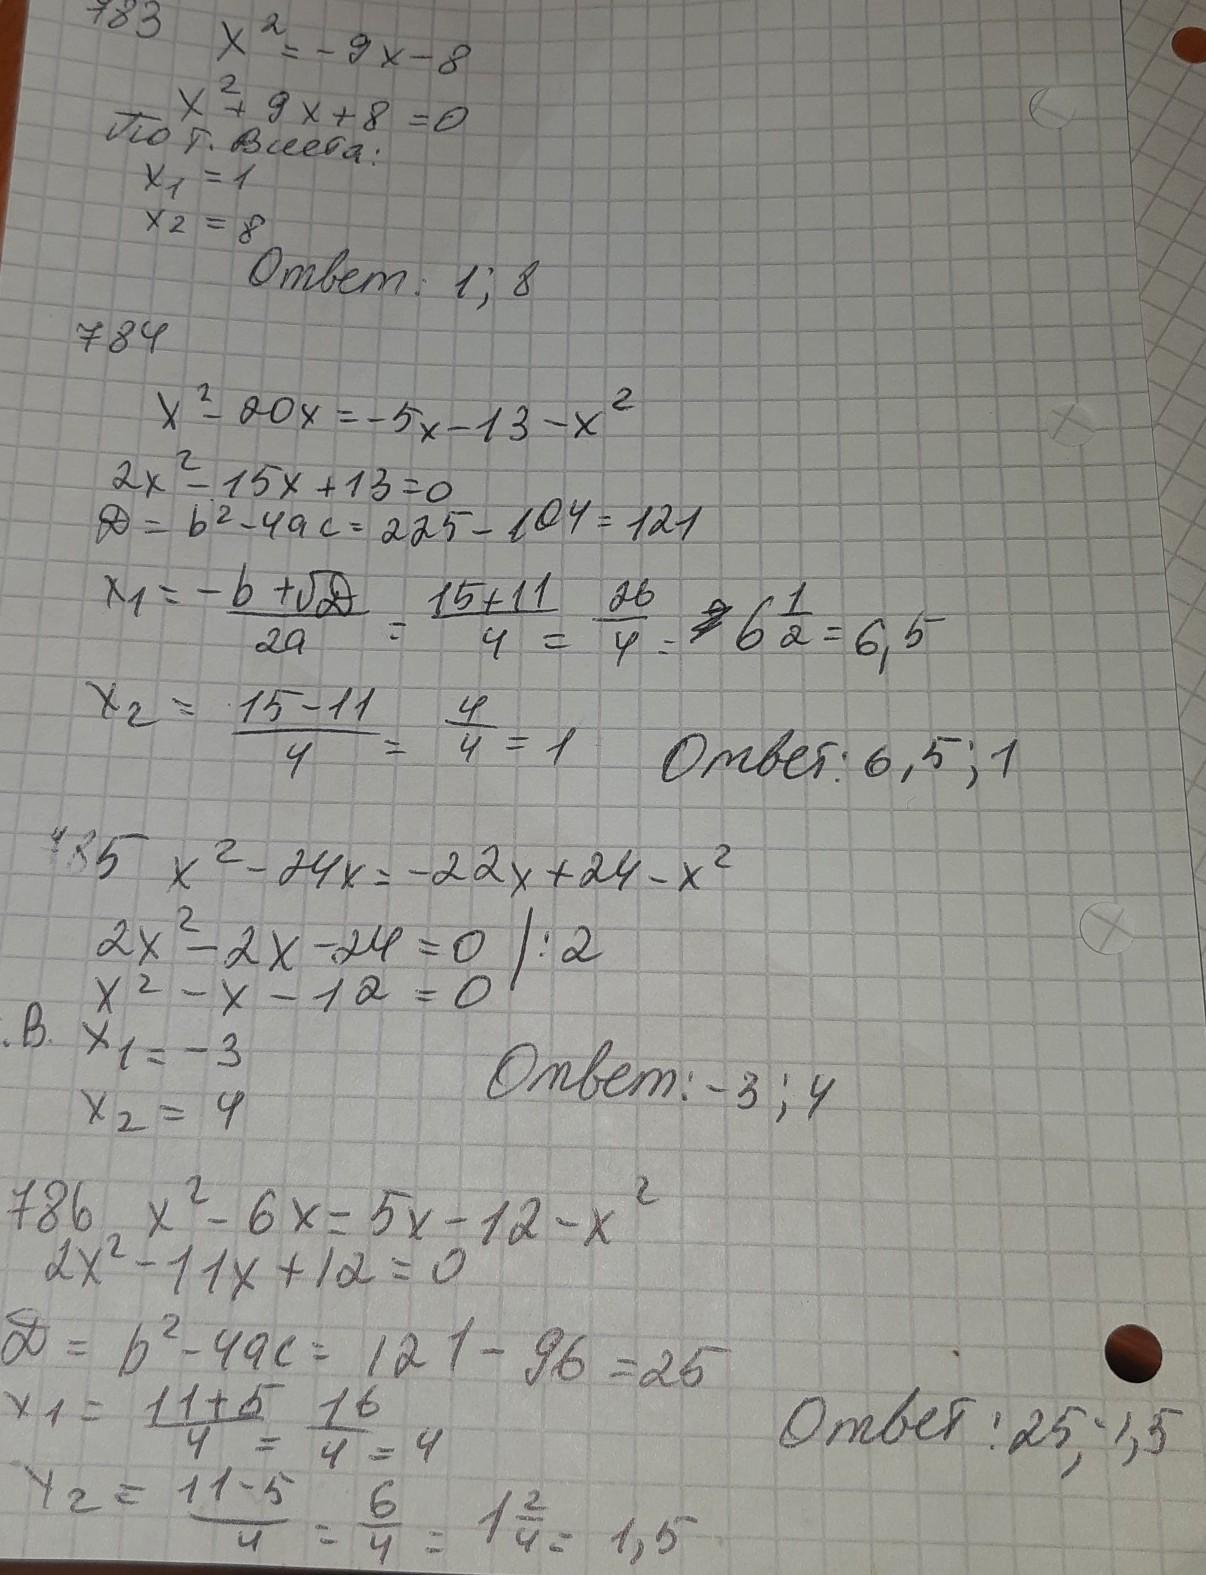 783 x² = -9x-8
x² + 9x + 8 = 0
По т. Виета:
x₁ = 1
x₂ = 8
Ответ: 1; 8
784
x² - 20x = -5x - 13 - x²
2x² - 15x + 13 = 0
D = b² - 4ac = 225 - 104 = 121
x₁ = (-b + √D)/2a = (15+11)/4 = 26/4 = 6 1/2 = 6,5
x₂ = (15-11)/4 = 4/4 = 1 Ответ: 6,5; 1
785 x² - 24x = -22x + 24 - x²
2x² - 2x - 24 = 0 |:2
x² - x - 12 = 0
.В. x₁ = -3
x₂ = 4 Ответ: -3; 4
786 x² - 6x = 5x - 12 - x²
2x² - 11x + 12 = 0
D = b² - 4ac = 121 - 96 = 25
x₁ = (11+5)/4 = 16/4 = 4
Ответ: 25; 1,5
x₂ = (11-5)/4 = 6/4 = 1 2/4 = 1,5